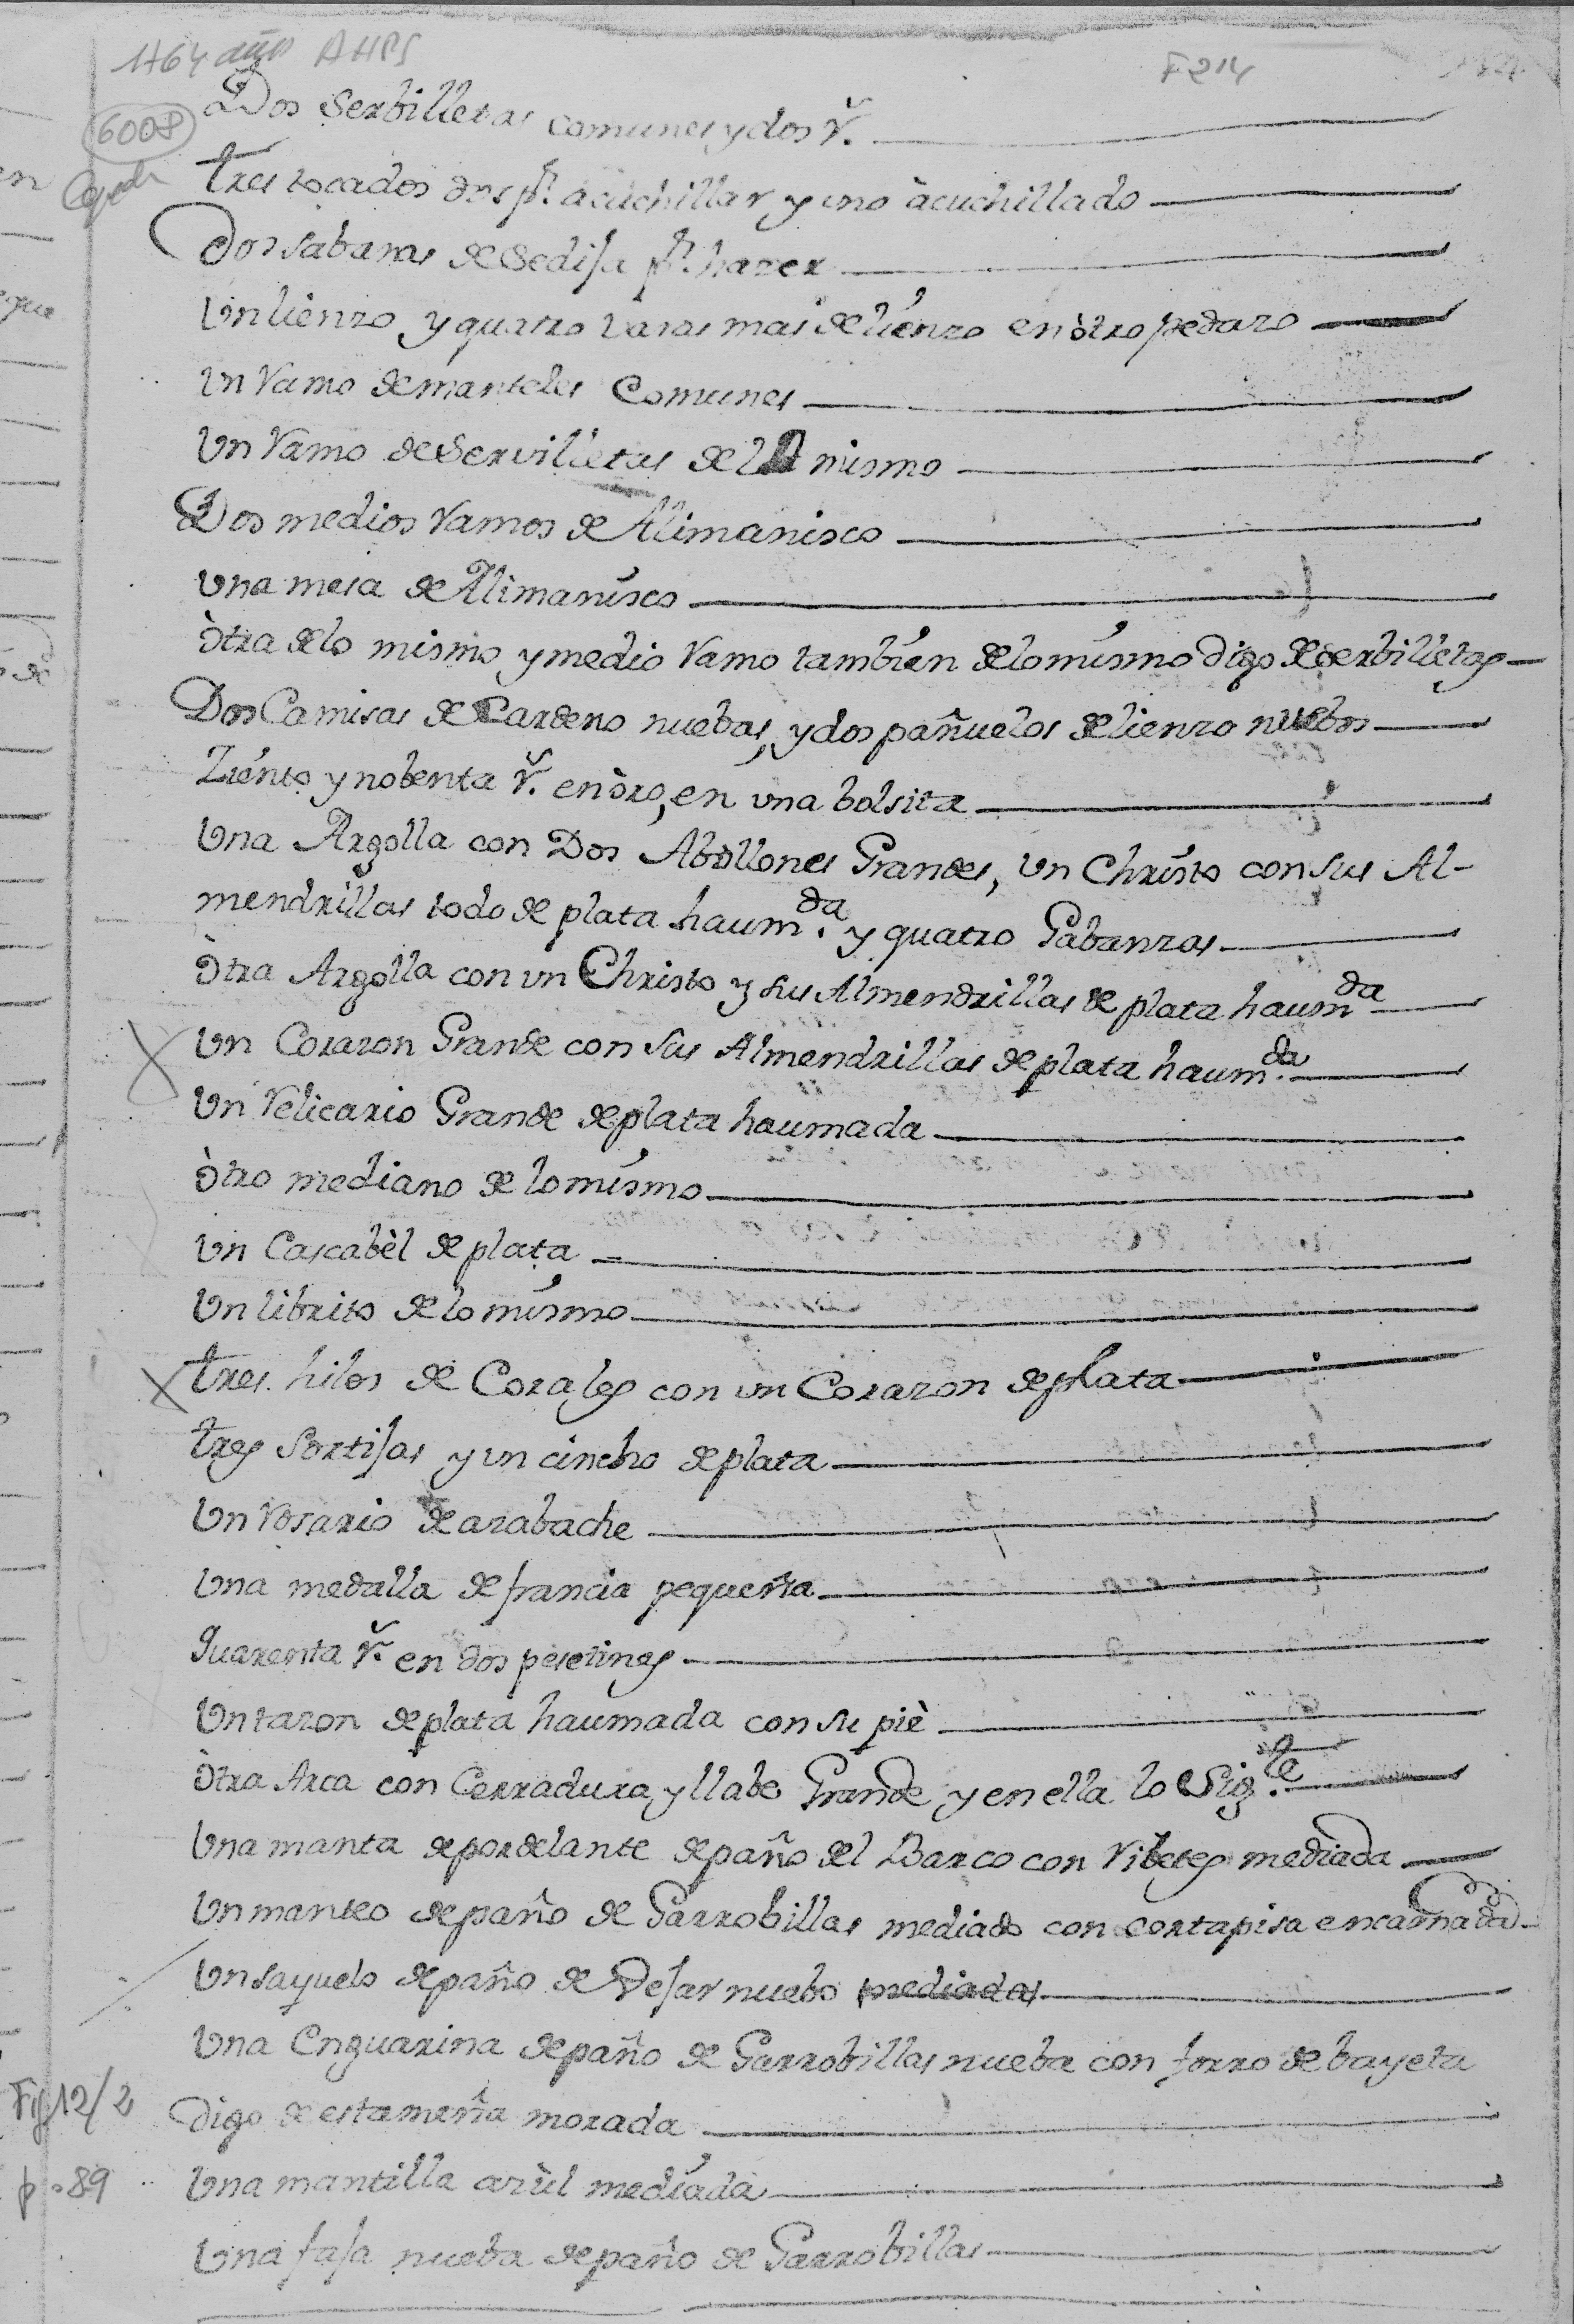 1764 años AHPS F 214
6008
Cepeda
Dos Serbilletas comunes y dos r.
tres tocados dos pª. acuchillar y uno àcuchillado
Dos sabanas de Sedisa pª. hazer
Un lienzo y quatro varas mas de lienzo en òtro pedazo
Un Ramo de manteles Comunes
Un Ramo de Servilletas del mismo
Dos medios Ramos de Alimanisco
Una mesa de Alimanisco
òtra de lo mismo y medio Ramo tambien de lo mismo digo de serbilletas
Dos Camisas de Cardeno nuebas, y dos pañuelos de lienzo nuebos
Ziento y nobenta r. en òro, en una bolsita
Una Argolla con Dos Abollones Grandes, Un Christo con sus Al-
mendrillas todo de plata haum.da y quatro Gabanzas
òtra Argolla con un Christo y sus Almendrillas de plata haumda
Un Corazon Grande con sus Almendrillas de plata haum.da
Un Relicario Grande de plata haumada
òtro mediano de lo mismo
Un Cascabèl de plata
Un librito de lo mismo
tres hilos de Corales con un Corazon de plata
tres Sortijas y un cincho de plata
Un Rosario de azabache
Una medalla de francia pequeña
Quarenta r. en dos pesetinas
Un tazon de plata haumada con su piè
òtra Arca con Cerradura, y llabe Grande y en ella lo Sig.te
Una manta de pordelante de paño del Barco con Ribetes mediada
Un manteo de paño de Garrobillas mediado con cortapisa encarnada
Un sayuelo de paño de Vejar nuebo mediadas
Una Enguarina de paño de Garrobillas nueba con forro de bayeta
digo de estameña morada
Fig 12/2
Una mantilla azùl mediada
p. 89
Una faja nueba de paño de Garrobillas